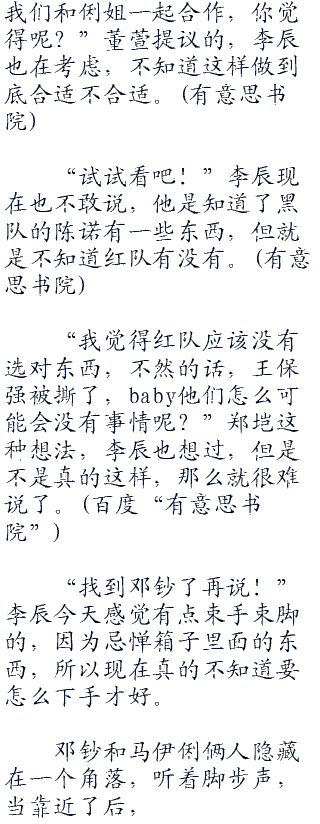 我们和俐姐一起合作，你觉
得呢？”董萱提议的，李辰
也在考虑，不知道这样做到
底合适不合适。(有意思书
院)
“试试看吧！”李辰现
在也不敢说，他是知道了黑
队的陈诺有一些东西，但就
是不知道红队有没有。(有意
思书院)
“我觉得红队应该没有
选对东西，不然的话，王保
强被撕了，baby他们怎么可
能会没有事情呢？”郑垲这
种想法，李辰也想过，但是
不是真的这样，那么就很难
说了。(百度“有意思书
院”)
“找到邓钞了再说！”
李辰今天感觉有点束手束脚
的，因为忌惮箱子里面的东
西，所以现在真的不知道要
怎么下手才好。
邓钞和马伊俐俩人隐藏
在一个角落，听着脚步声，
当靠近了后，